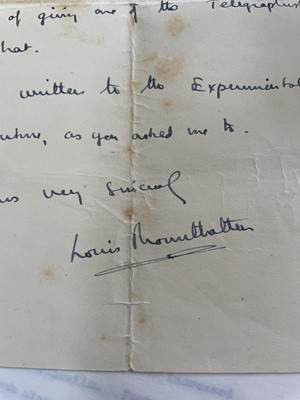 of giving one of the Telegraphist
that.
written to the Experimental
, as you asked me to.
very sincerely
Louis Mountbatten